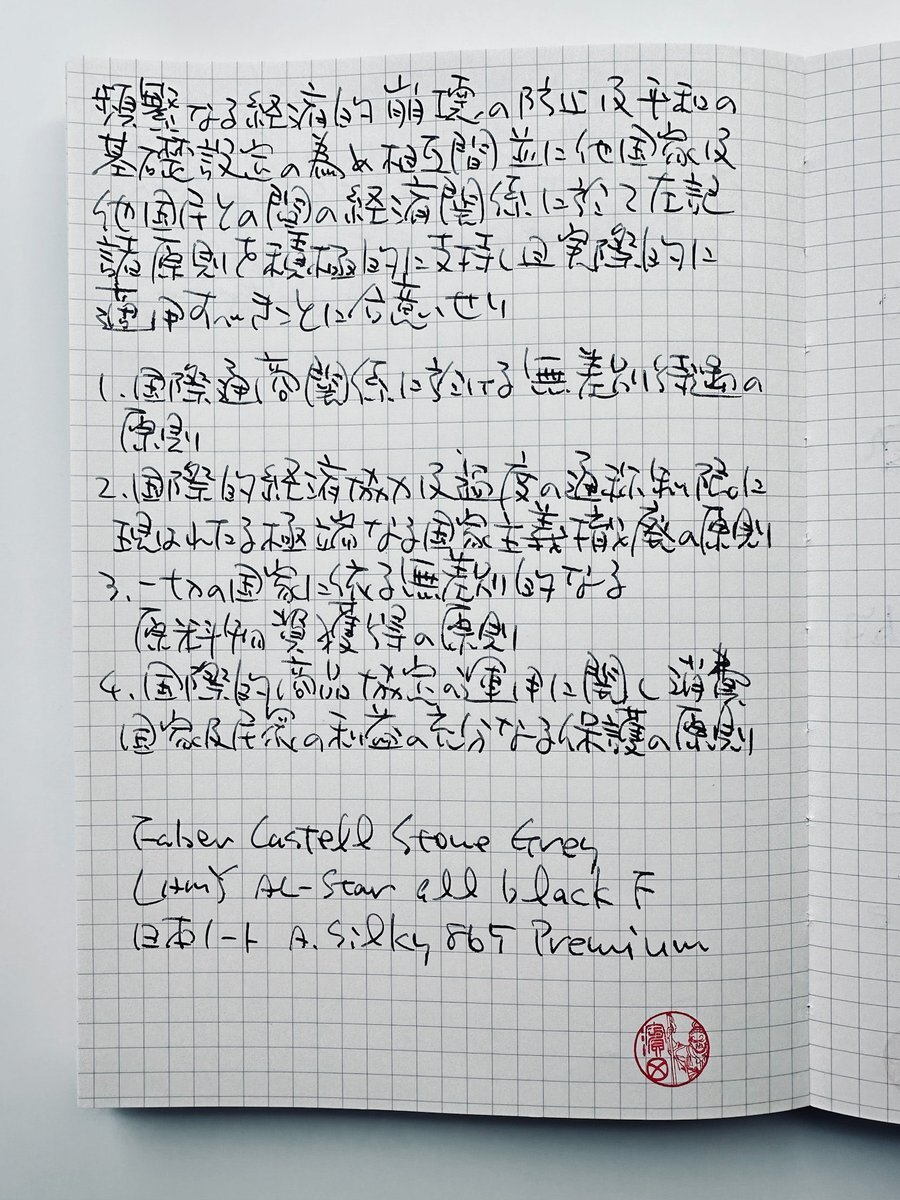 頻繁なる経済的崩壊の防止及平和の
基礎設定の為め相互間並に他国家及
他国民との間の経済関係に於て左記
諸原則を積極的に支持し且実際的に
適用すべきことに合意いせり
1. 国際通商関係に於ける無差別待遇の
原則
2. 国際的経済協力及過度の通称制限に
現はれたる極端なる国家主義撤廃の原則
3. 一切の国家に依る無差別的なる
原料物資獲得の原則
4. 国際的商品協定の運用に関し消費
国家及民衆の利益の充分なる保護の原則
Faber Castell Stone Grey
LAMY AL-Star all black F
日本ノート A.Silky 865 Premium